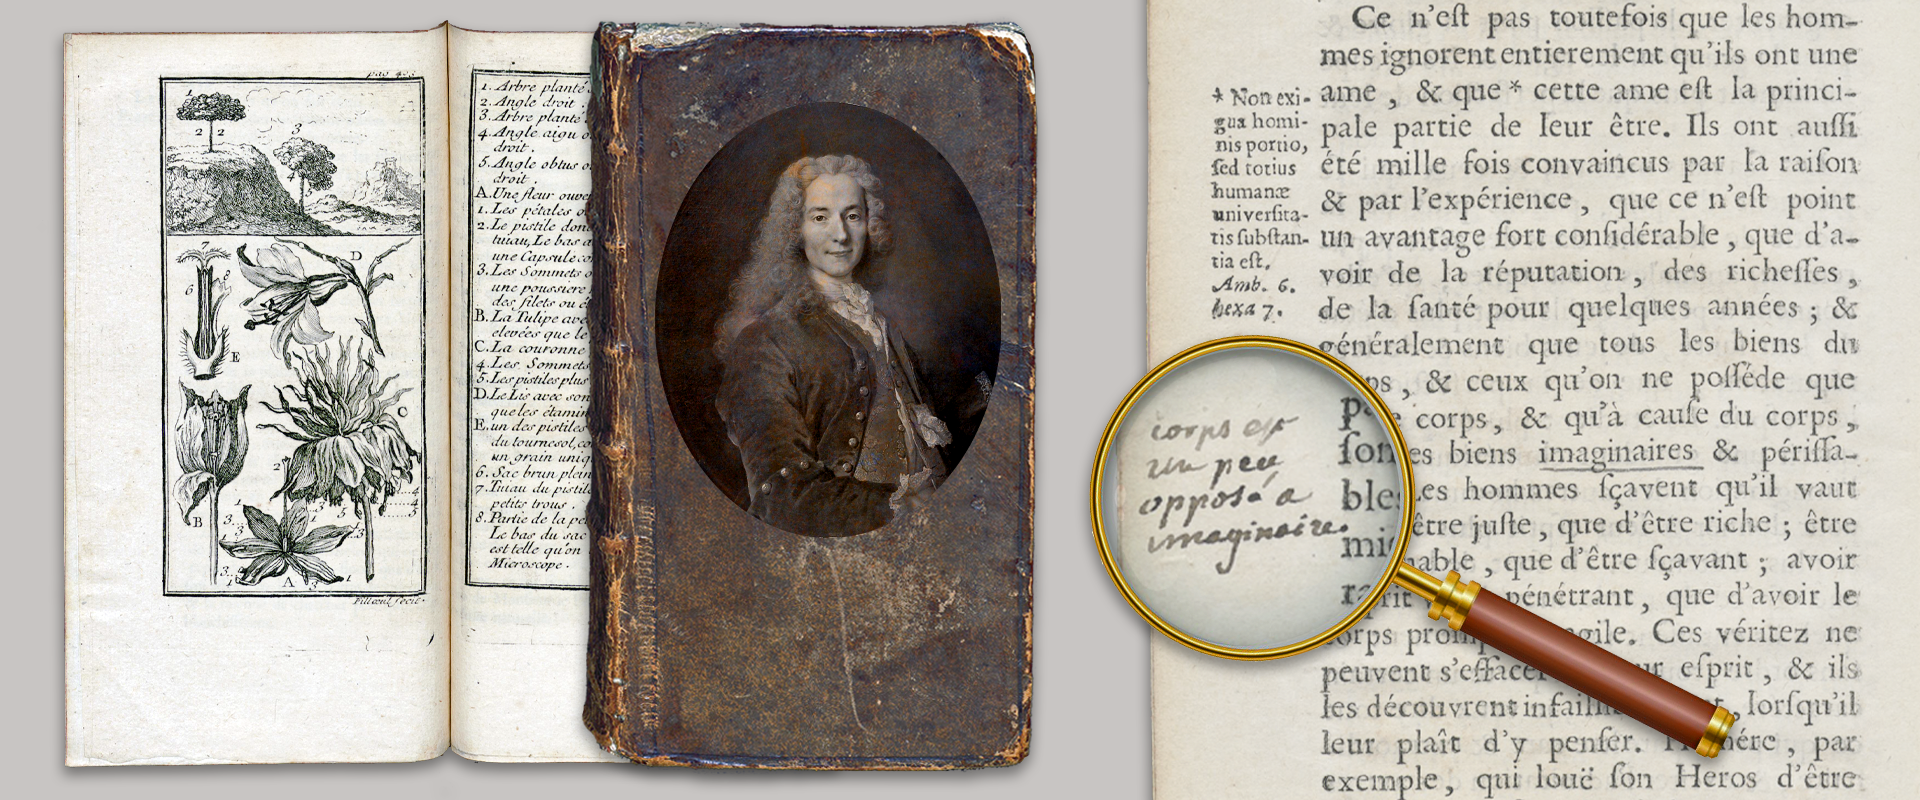 pag 433
1. Arbre planté
2. Angle droit.
3. Arbre planté
4. Angle aigu o
droit.
5. Angle obtus o
droit.
A. Une fleur ouve
1. Les pétales o
2. Le pistile don
tuiau, Le bas a
une Capsule co
3. Les Sommets o
une poussiere
des filets ou é
B. La Tulipe ave
elevées que le
C. La couronne
4. Les Sommets
5. Les pistiles plus
D. Le Lis avec son
que les étamin
E. un des pistiles
du tournesol, co
un grain uniq
6. Sac brun plein
7. Tuiau du pistil
petits trous.
8. Partie de la pe
Le bas du sac
est telle qu'on
Microscope.
* Non exi-
gua homi-
nis portio,
ſed totius
humanæ
univerſita-
tis ſubſtan-
tia eſt.
Amb. 6.
hexa 7.
corps est
un peu
opposé a
imaginaire.
Ce n'eſt pas toutefois que les hom-
mes ignorent entierement qu'ils ont une
ame, & que * cette ame eſt la princi-
pale partie de leur être. Ils ont auſſi
été mille fois convaincus par la raiſon
& par l'expérience, que ce n'eſt point
un avantage fort conſidérable, que d'a-
voir de la réputation, des richeſſes,
de la ſanté pour quelques années; &
généralement que tous les biens du
ps, & ceux qu'on ne poſſéde que
corps, & qu'à cauſe du corps,
ſon es biens imaginaires & périſſa-
bles Les hommes ſçavent qu'il vaut
être juſte, que d'être riche; être
nable, que d'être ſçavant; avoir
rit pénétrant, que d'avoir le
corps prom gile. Ces véritez ne
peuvent s'effacer ur eſprit, & ils
les découvrent infailli t, lorſqu'il
leur plaît d'y penſer. H mére, par
exemple, qui louë ſon Heros d'être